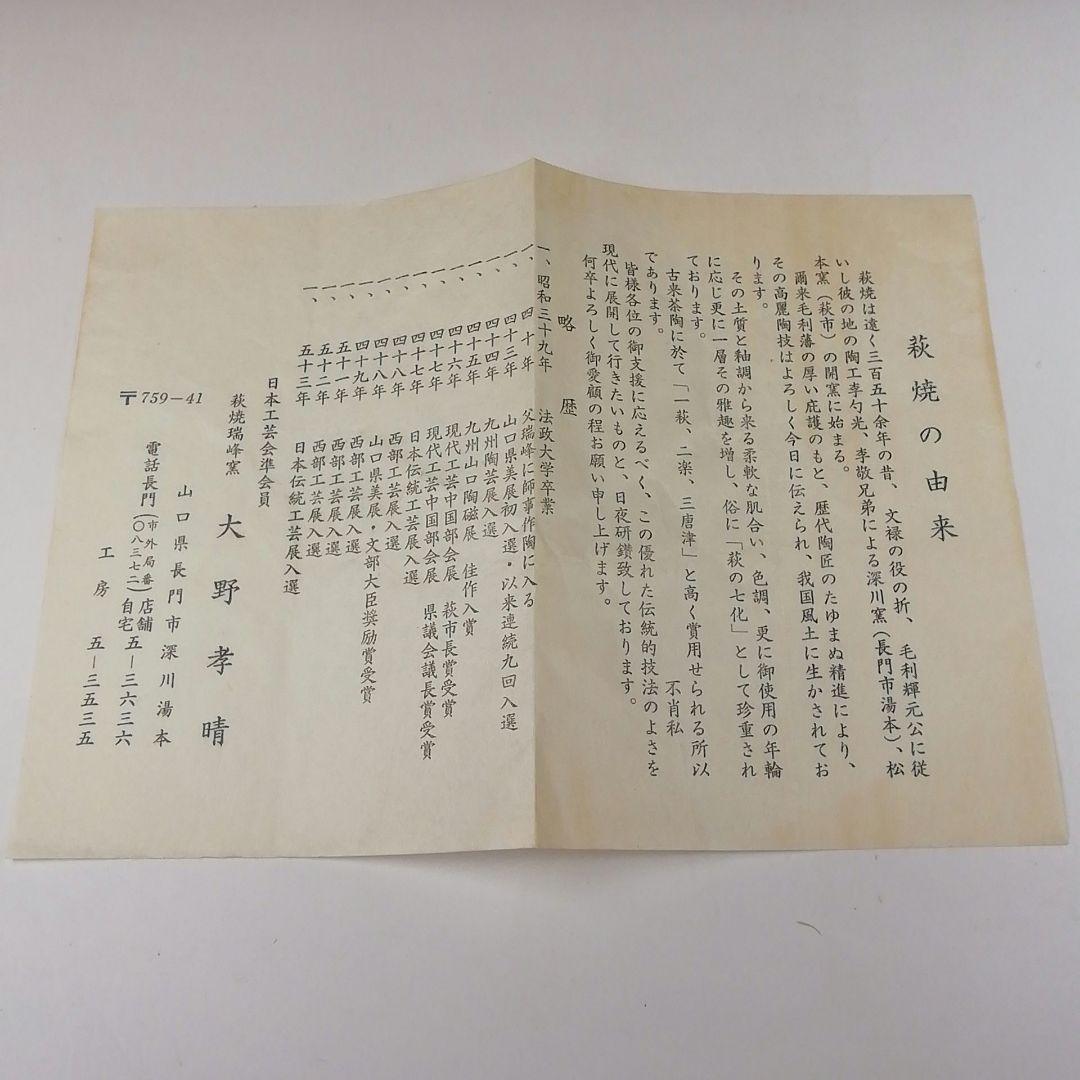 萩焼の由来
萩焼は遠く三百五十余年の昔、文禄の役の折、毛利輝元公に従
いし彼の地の陶工李勺光、李敬兄弟による深川窯(長門市湯本)、松
本窯(萩市)の開窯に始まる。
爾来毛利藩の厚い庇護のもと、歴代陶匠のたゆまぬ精進により、
その高麗陶技はよろしく今日に伝えられ、我国風土に生かされてお
ります。
その土質と釉調から来る柔軟な肌合い、色調、更に御使用の年輪
に応じ更に一層その雅趣を増し、俗に「萩の七化」として珍重され
ております。
古来茶陶に於て「一萩、二楽、三唐津」と高く賞用せられる所以
であります。　不肖私
皆様各位の御支援に応えるべく、この優れた伝統的技法のよさを
現代に展開して行きたいものと、日夜研鑚致しております。
何卒よろしく御愛顧の程お願い申し上げます。
略歴
一、昭和三十九年　法政大学卒業
一、四十年　父瑞峰に師事作陶に入る
一、四十三年　山口県美展初入選・以来連続九回入選
一、四十四年　九州陶芸展入選
一、四十五年　九州山口陶磁展　佳作入賞
一、四十六年　現代工芸中国部会展　萩市長賞受賞
一、四十七年　現代工芸中国部会展　県議会議長賞受賞
一、四十七年　日本伝統工芸展入選
一、四十八年　西部工芸展入選
一、四十八年　山口県美展・文部大臣奨励賞受賞
一、四十九年　西部工芸展入選
一、五十一年　西部工芸展入選
一、五十二年　西部工芸展入選
一、五十三年　日本伝統工芸展入選
日本工芸会準会員
萩焼瑞峰窯
大野孝晴
〒759-41
山口県長門市深川湯本
電話長門(市外局番〇八三七二)店舗自宅五―三六三六
工房　五―三五三五